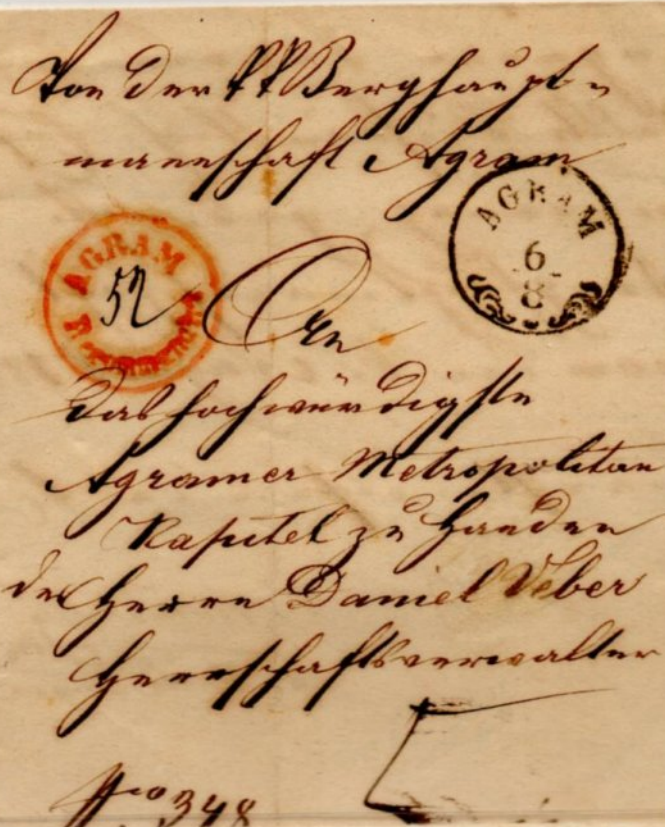 Von der k k Berghaupt-
mannschaft Agram
AGRAM
6
8
AGRAM
52
An
das hochwürdigste
Agramer Metropolitan
Kapitel zu Handen
des Herrn Daniel Veber
Herrschaftsverwalter
Nro 348